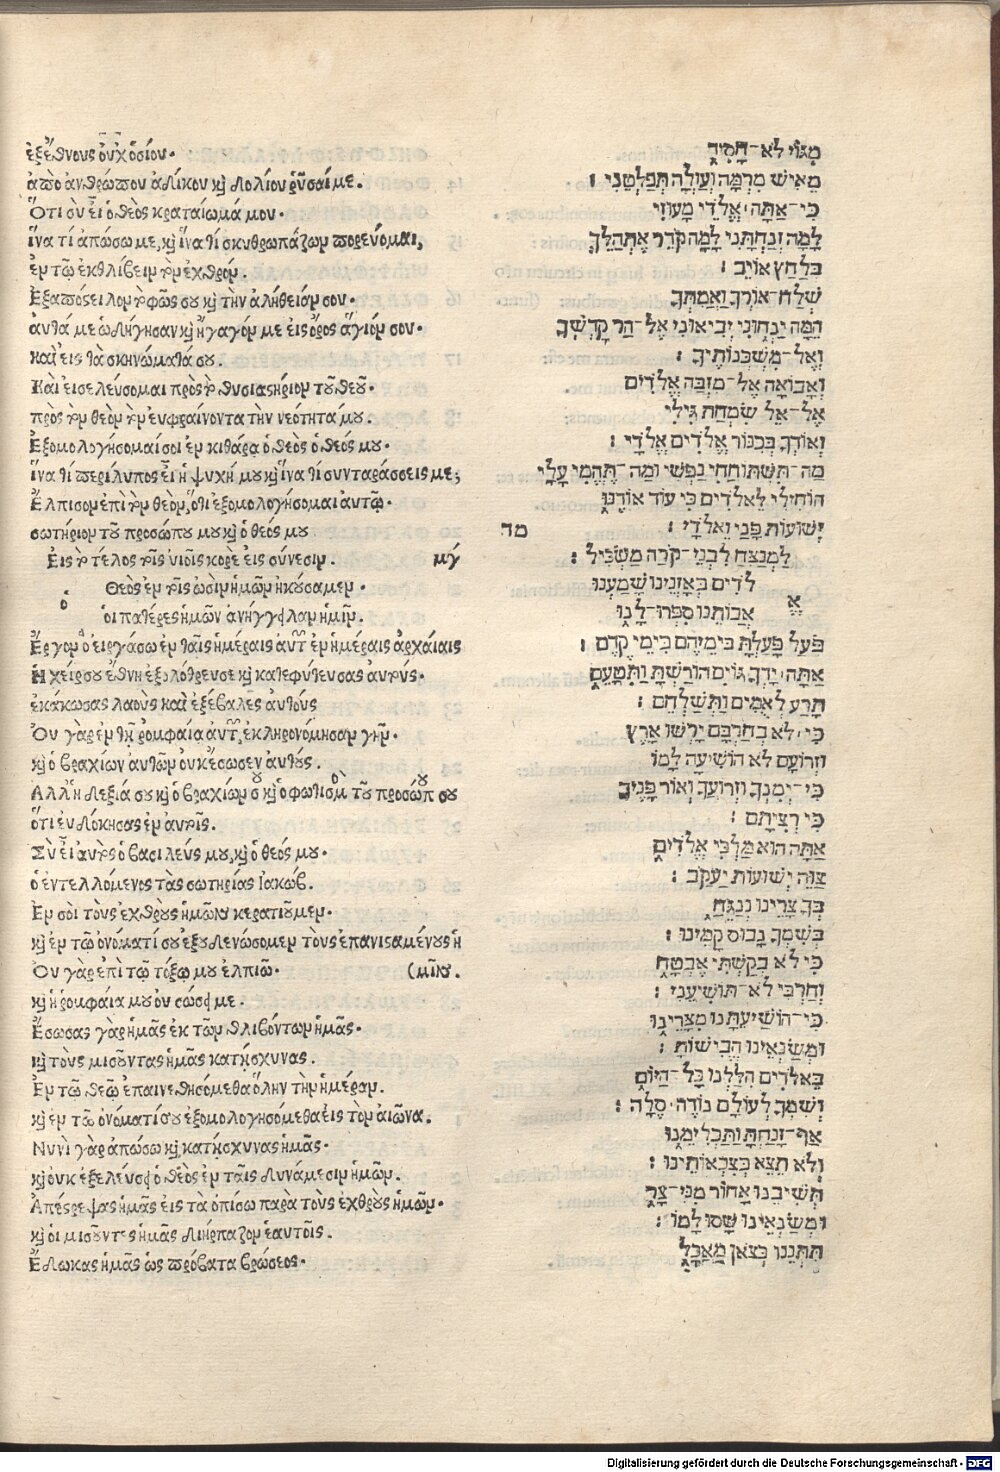 ἐξ ἔθνους οὐχ ὁσίου.
ἀπὸ ἀνθρώπου ἀδίκου κỳ δολίου ῥῦσαί με.
Ὅτι σὺ εἶ ὁ θεὸς κραταίωμά μου.
ἵνα τί ἀπώσω με, κỳ ἵνα τί σκυθρωπάζων πορεύομαι,
ἐν τῷ ἐκθλίβειν τὸν ἐχθρόν.
Ἐξαπόστειλον τὸ φῶς σου κỳ τὴν ἀλήθειάν σου.
αὐτά με ὡδήγησαν κỳ ἤγαγόν με εἰς ὄρος ἅγιόν σου.
καὶ εἰς τὰ σκηνώματά σου.
Καὶ εἰσελεύσομαι πρὸς τὸ θυσιαστήριον τοῦ θεοῦ.
πρὸς τὸν θεὸν τὸν εὐφραίνοντα τὴν νεότητά μου.
Ἐξομολογήσομαί σοι ἐν κιθάρᾳ ὁ θεὸς ὁ θεός μου.
ἵνα τί περίλυπος εἶ ἡ ψυχή μου κỳ ἵνα τί συνταράσσεις με;
Ἔλπισον ἐπὶ τὸν θεὸν, ὅτι ἐξομολογήσομαι αὐτῷ.
σωτήριον τοῦ προσώπου μου κỳ ὁ θεός μου
Εἰς τὸ τέλος τοῖς υἱοῖς κορὲ εἰς σύνεσιν. μγ́
Ὁ θεὸς ἐν τοῖς ὠσὶν ἡμῶν ἠκούσαμεν.
οἱ πατέρες ἡμῶν ἀνήγγειλαν ἡμῖν.
Ἔργον ὃ εἰργάσω ἐν ταῖς ἡμέραις αὐτῶν ἐν ἡμέραις ἀρχαίαις
Ἡ χείρ σου ἔθνη ἐξολόθρευσε κỳ κατεφύτευσας αὐτούς.
ἐκάκωσας λαοὺς καὶ ἐξέβαλες αὐτούς
Οὐ γὰρ ἐν τῇ ῥομφαίᾳ αὐτῶν ἐκληρονόμησαν γῆν.
κỳ ὁ βραχίων αὐτῶν οὐκ ἔσωσεν αὐτούς.
Ἀλλ' ἡ δεξιά σου κỳ ὁ βραχίων σου κỳ ὁ φωτισμὸς τοῦ προσώπου σου
ὅτι εὐδόκησας ἐν αὐτοῖς.
Σὺ εἶ αὐτὸς ὁ βασιλεύς μου, κỳ ὁ θεός μου.
ὁ ἐντελλόμενος τὰς σωτηρίας Ιακώβ.
Ἐν σοὶ τοὺς ἐχθροὺς ἡμῶν κερατιοῦμεν.
κỳ ἐν τῷ ὀνόματί σου ἐξουδενώσομεν τοὺς ἐπανισταμένους ἡ
Οὐ γὰρ ἐπὶ τῷ τόξῳ μου ἐλπιῶ. (μῖν.
κỳ ἡ ῥομφαία μου οὐ σώσει με.
Ἔσωσας γὰρ ἡμᾶς ἐκ τῶν θλιβόντων ἡμᾶς.
κỳ τοὺς μισοῦντας ἡμᾶς κατῄσχυνας.
Ἐν τῷ θεῷ ἐπαινεθησόμεθα ὅλην τὴν ἡμέραν.
κỳ ἐν τῷ ὀνόματί σου ἐξομολογησόμεθα εἰς τὸν αἰῶνα.
Νυνὶ γὰρ ἀπώσω κỳ κατῄσχυνας ἡμᾶς.
κỳ οὐκ ἐξελεύσει ὁ θεὸς ἐν ταῖς δυνάμεσιν ἡμῶν.
Ἀπέστρεψας ἡμᾶς εἰς τὰ ὀπίσω παρὰ τοὺς ἐχθροὺς ἡμῶν.
κỳ οἱ μισοῦντες ἡμᾶς διήρπαζον ἑαυτοῖς.
Ἔδωκας ἡμᾶς ὡς πρόβατα βρώσεος.
מִגּוֹי לֹא־חָסִיד
מֵאִישׁ מִרְמָה וְעַוְלָה תְפַלְּטֵנִי׃
כִּי־אַתָּה אֱלֹדֵי מָעוּזִּי
לָמָה זְנַחְתָּנִי לָמָּה קֹדֵר אֶתְהַלֵּךְ
בְּלַחַץ אוֹיֵב׃
שְׁלַח־אוֹרְךָ וַאֲמִתְּךָ
הֵמָּה יַנְחוּנִי יְבִיאוּנִי אֶל־הַר קָדְשְׁךָ
וְאֶל־מִשְׁכְּנוֹתֶיךָ׃
וְאָבוֹאָה אֶל־מִזְבַּח אֱלֹדִים
אֶל־אֵל שִׂמְחַת גִּילִי
וְאוֹדְךָ בְּכִנּוֹר אֱלֹדִים אֱלֹדָי׃
מַה־תִּשְׁתּוֹחֲחִי נַפְשִׁי וּמַה־תֶּהֱמִי עָלָי
הוֹחִילִי לֵאלֹדִים כִּי עוֹד אוֹדֶנּוּ
יְשׁוּעוֹת פָּנַי וֵאלֹדָי׃ מד
לַמְנַצֵּחַ לִבְנֵי־קֹרַח מַשְׂכִּיל׃
אֱלֹדִים בְּאָזְנֵינוּ שָׁמַעְנוּ
אֲבוֹתֵנוּ סִפְּרוּ־לָנוּ
פֹּעַל פָּעַלְתָּ בִימֵיהֶם בִּימֵי קֶדֶם׃
אַתָּה יָדְךָ גּוֹיִם הוֹרַשְׁתָּ וַתִּטָּעֵם
תָּרַע לְאֻמִּים וַתְּשַׁלְּחֵם׃
כִּי לֹא בְחַרְבָּם יָרְשׁוּ אָרֶץ
וּזְרוֹעָם לֹא הוֹשִׁיעָה לָּמוֹ
כִּי־יְמִינְךָ וּזְרוֹעֲךָ וְאוֹר פָּנֶיךָ
כִּי רְצִיתָם׃
אַתָּה הוּא מַלְכִּי אֱלֹדִים
צַוֵּה יְשׁוּעוֹת יַעֲקֹב׃
בְּךָ צָרֵינוּ נְנַגֵּחַ
בְּשִׁמְךָ נָבוּס קָמֵינוּ׃
כִּי לֹא בְקַשְׁתִּי אֶבְטָח
וְחַרְבִּי לֹא־תוֹשִׁיעֵנִי׃
כִּי־הוֹשַׁעְתָּנוּ מִצָּרֵינוּ
וּמְשַׂנְאֵינוּ הֱבִישׁוֹתָ׃
בֵּאלֹדִים הִלַּלְנוּ כָל־הַיּוֹם
וְשִׁמְךָ לְעוֹלָם נוֹדֶה סֶלָה׃
אַף־זָנַחְתָּ וַתַּכְלִימֵנוּ
וְלֹא תֵצֵא בְּצִבְאוֹתֵינוּ׃
תְּשִׁיבֵנוּ אָחוֹר מִנִּי־צָר
וּמְשַׂנְאֵינוּ שָׁסוּ לָמוֹ׃
תִּתְּנֵנוּ כְּצֹאן מַאֲכָל
Digitalisierung gefördert durch die Deutsche Forschungsgemeinschaft - DFG